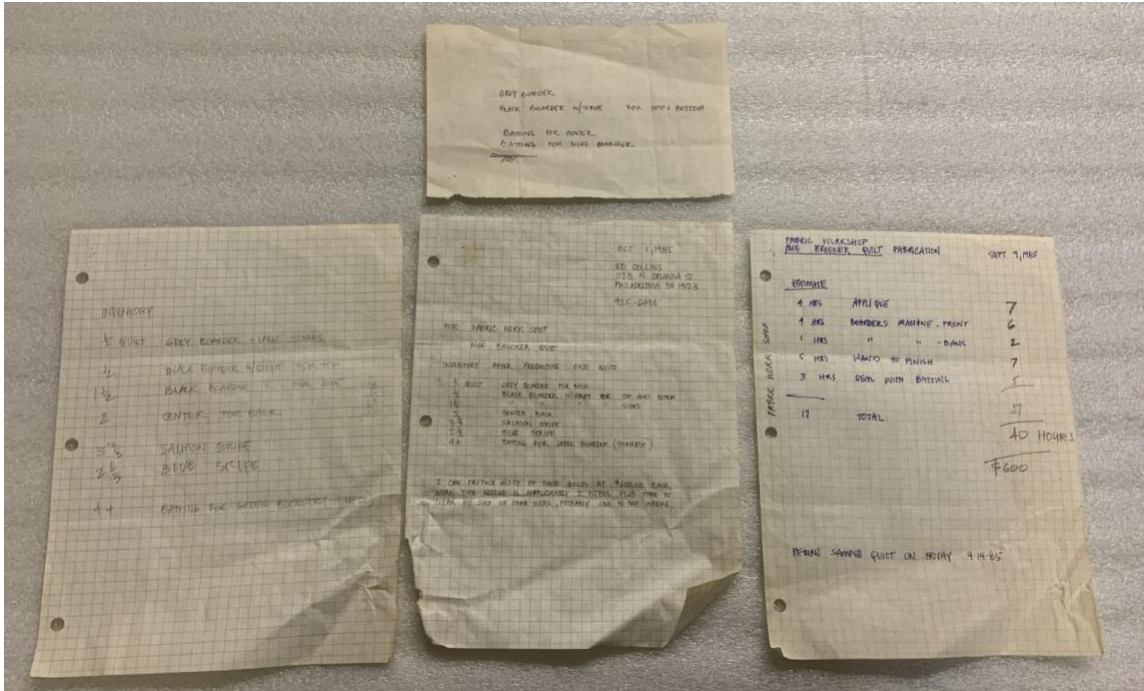 GREY BOARDER
BLACK BOARDER W/STRIPE FOR TOP & BOTTOM
BATTING FOR CENTER
BATTING FOR BOARDER
INVENTORY
QUILT GREY BOARDER
BLACK BOARDER W/STRIPE
1 1/2 BLACK BOARDER " FOR SIDE
2 CENTER FOR BACK
3 2/3 SALMON STRIPE
2 BLUE STRIPE
4+ BATTING FOR
OCT 1, 1985
ED COLLINS
N. ST
PHILADELPHIA PA 19123
FOR FABRIC WORK SHOP
INVENTORY AFTER PRODUCING ONE QUILT
1/2 QUILT GREY BOARDER FOR BACK
BLACK BOARDER W/STRIPE FOR TOP AND BOTTOM
" " " SIDES
CENTER, BACK
SALMON STRIPE
BLUE STRIPE
4+ BATTING FOR BOARDER
I CAN PRODUCE MORE OF THESE QUILTS AT $600.00 EACH.
WORK TIME NEEDED IS APPROXIMATELY 2 WEEKS, PLUS TIME TO
CLEAR MY SELF OF OTHER WORK, PROBABLY ONE TO TWO WEEKS.
FABRIC WORKSHOP
QUILT FABRICATION SEPT 9, 1985
ESTIMATE
4 HRS APPLIQUE 7
4 HRS BOARDERS MACHINE - FRONT 6
1 HRS " " - BACK 2
5 HRS HAND TO FINISH 7
3 HRS DEAL WITH BATTING 5
17 TOTAL 27
40 HOURS
$600
FABRIC WORK SHOP
RETURN SAMPLE QUILT ON FRIDAY 9-14-85